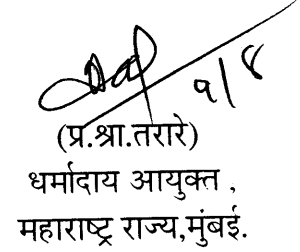 ९/४
(प्र.श्रा.तरारे)
धर्मादाय आयुक्त ,
महाराष्ट्र राज्य,मुंबई.